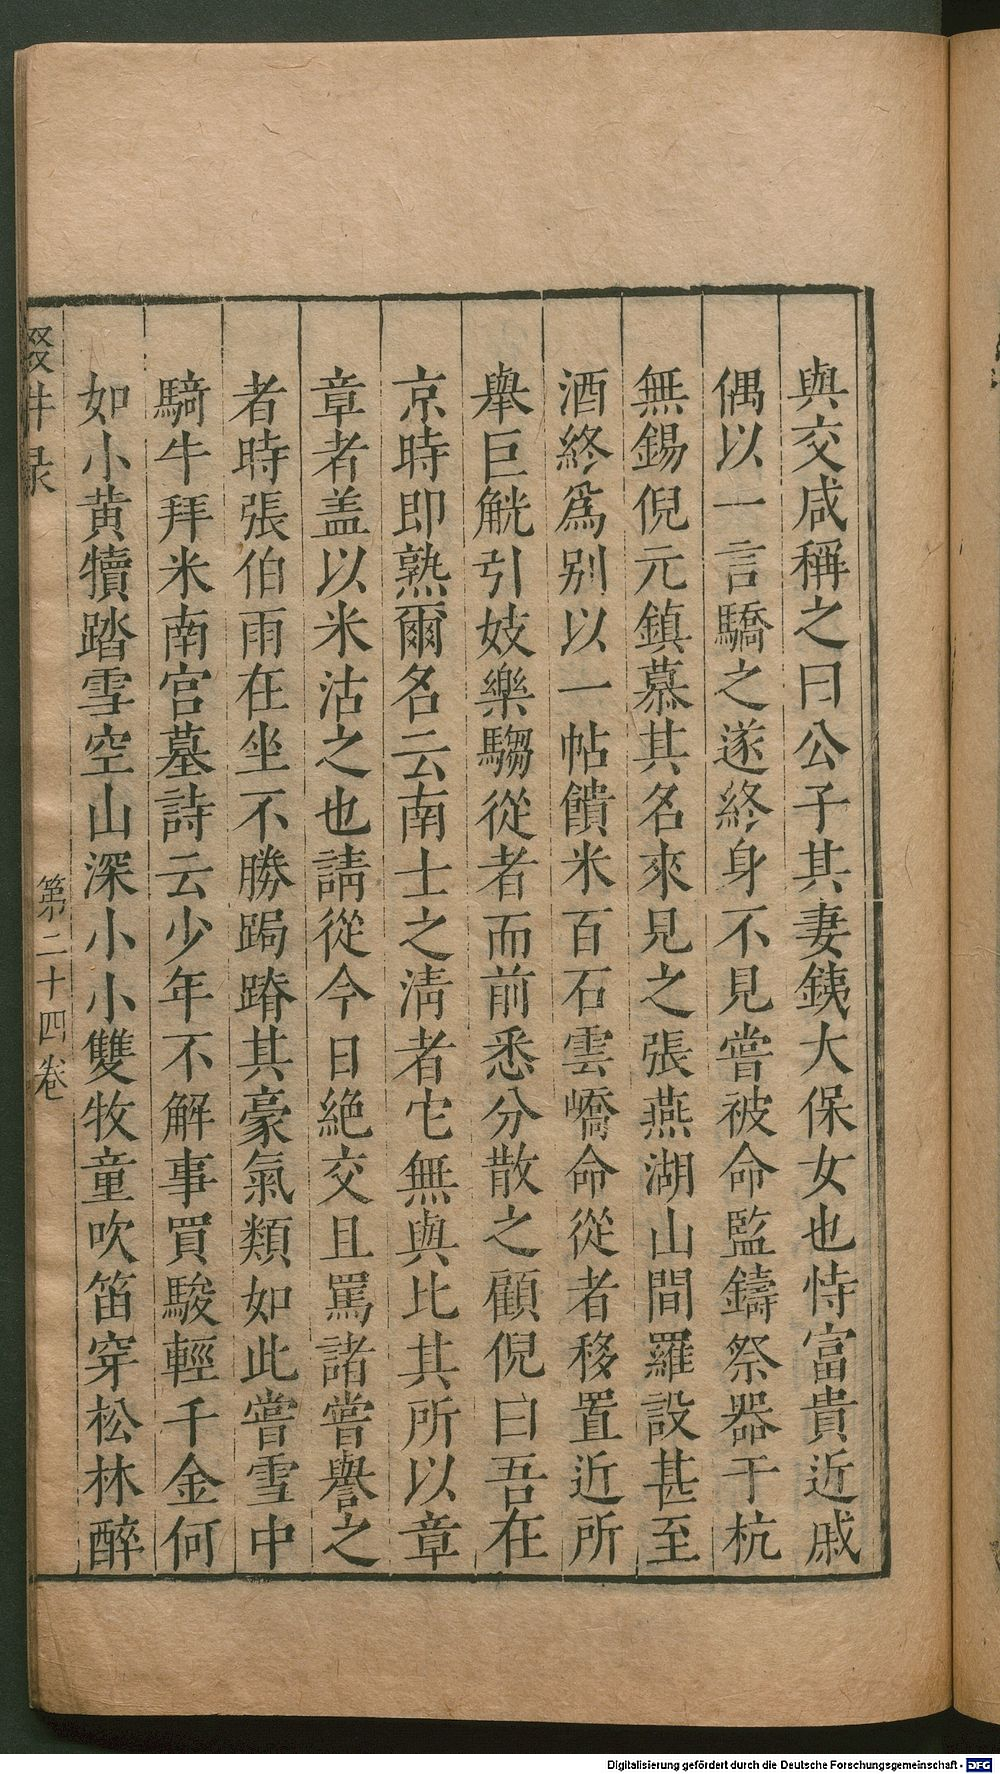 與交咸稱之曰公子其妻銕大保女也恃富貴近戚
偶以一言驕之遂終身不見嘗被命監鑄祭器于杭
無錫倪元鎮慕其名來見之張燕湖山間羅設甚至
酒終爲别以一帖饋米百石雲嶠命從者移置近所
舉巨觥引妓樂騶從者而前悉分散之顧倪曰吾在
京時即熟爾名云南士之淸者它無與比其所以章
章者盖以米沽之也請從今日絶交且罵諸嘗譽之
者時張伯雨在坐不勝跼蹐其豪氣類如此嘗雪中
騎牛拜米南宫墓詩云少年不解事買駿輕千金何
如小黄犢踏雪空山深小小雙牧童吹笛穿松林醉
輟畊录
第二十四卷
Digitalisierung gefördert durch die Deutsche Forschungsgemeinschaft - DFG